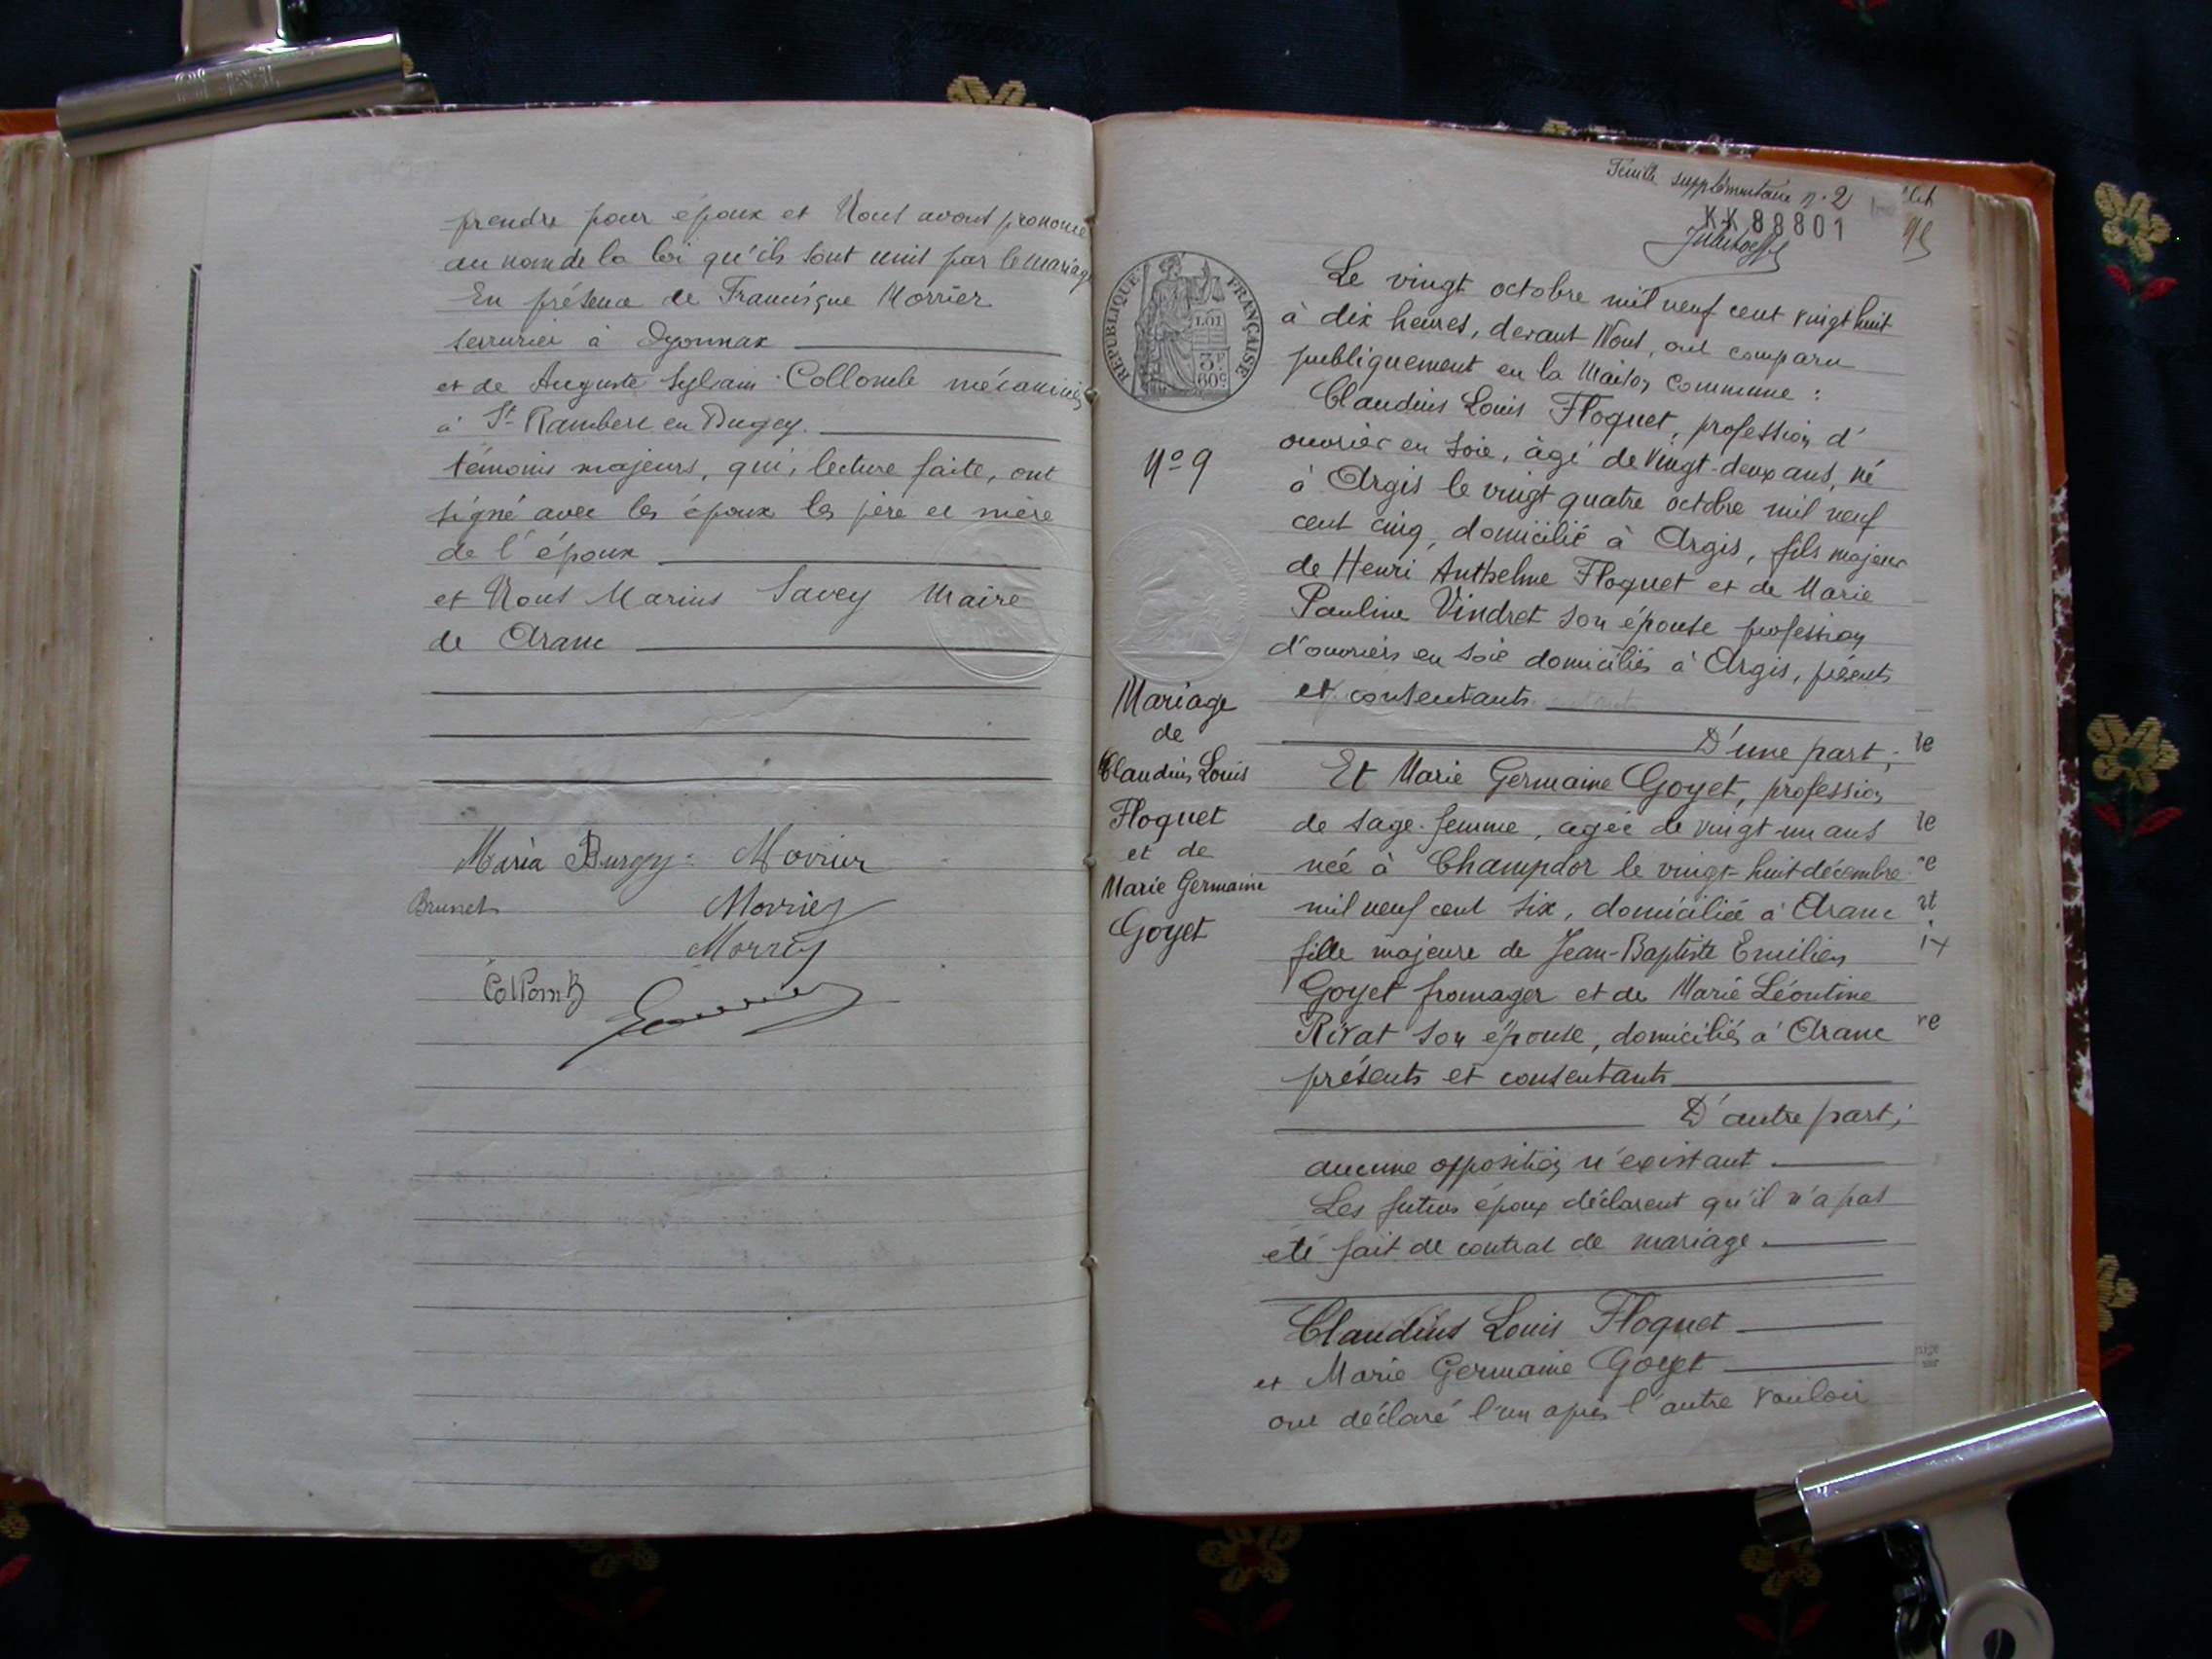 prendre pour époux et Nous avons prononcé
au nom de la loi qu'ils sont unis par le mariage
En présence de Francisque Morrier
serrurier à Oyonnax
et de Auguste Sylvain Collomb mécanicien
à St Rambert en Bugey.
témoins majeurs, qui, lecture faite, ont
signé avec les époux les père et mère
de l'époux
et Nous Marius Savey Maire
de Aranc
Maria Burgy Morrier
Brunet Morrier
Morrier
Collomb
Feuille supplémentaire n. 2
KK 88801
RÉPUBLIQUE FRANÇAISE
LOI
3F
60c
Nº 9
Mariage
de
Claudius Louis
Floquet
et de
Marie Germaine
Goyet
Le vingt octobre mil neuf cent vingt huit
à dix heures, devant Nous, ont comparu
publiquement en la Maison Commune :
Claudius Louis Floquet, profession d'
ouvrier en soie, âgé de vingt-deux ans, né
à Argis le vingt quatre octobre mil neuf
cent cinq, domicilié à Argis, fils majeur
de Henri Anthelme Floquet et de Marie
Pauline Vindret son épouse profession
d'ouvriers en soie domiciliés à Argis, présents
et consentants
D'une part ;
Et Marie Germaine Goyet, profession
de sage-femme, agée de vingt-un ans
née à Champdor le vingt-huit décembre
mil neuf cent six, domiciliée à Aranc
fille majeure de Jean-Baptiste Emilien
Goyet fromager et de Marie Léontine
Rivat son épouse, domiciliés à Aranc
présents et consentants
D'autre part ;
aucune opposition n'existant
Les futurs époux déclarent qu'il n'a pas
été fait de contrat de mariage.
Claudius Louis Floquet
et Marie Germaine Goyet
ont déclaré l'un après l'autre vouloir